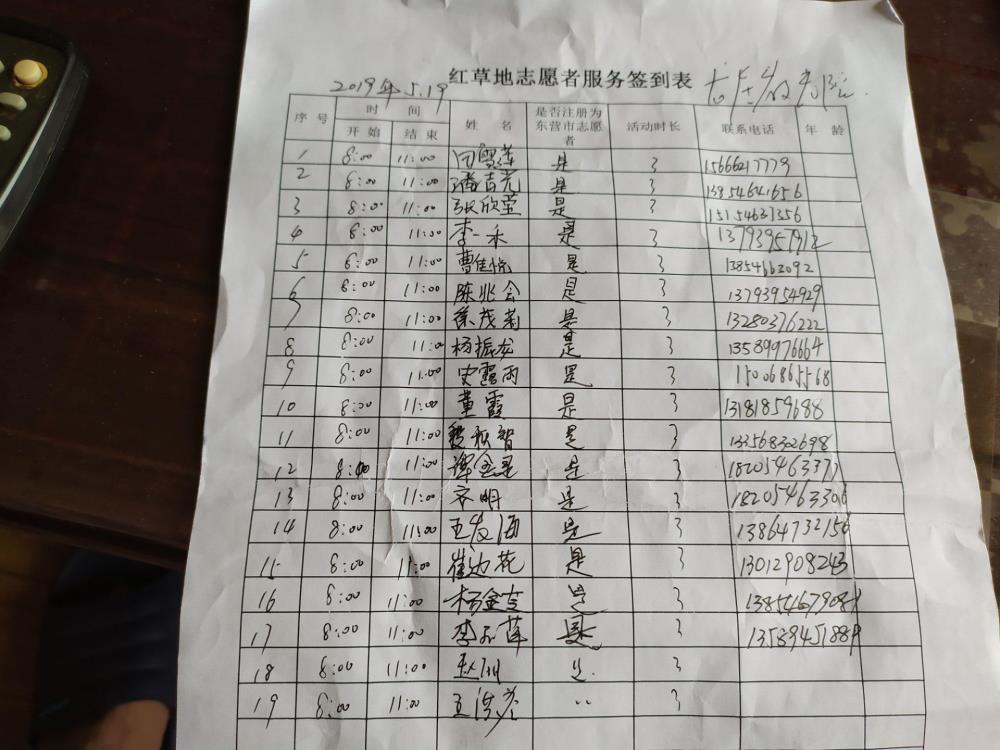 红草地志愿者服务签到表
2019年5.19
序号 时间 姓名 是否注册为东营市志愿者 活动时长 联系电话 年龄
开始 结束
1 8:00 11:00 是 3 15666217779
2 8:00 11:00 潘吉光 是 3 13954641656
3 8:00 11:00 张欣莹 是 3 15154631356
4 8:00 11:00 李一禾 是 3 13793957912
5 8:00 11:00 曹佳悦 是 3 13854663092
6 8:00 11:00 陈兆会 是 3 13793954929
7 8:00 11:00 徐茂莉 是 3 13280376222
8 8:00 11:00 杨振龙 是 3 13589976664
9 8:00 11:00 史露雨 是 3 15006865568
10 8:00 11:00 董霞 是 3 13181859688
11 8:00 11:00 是 3 13356832698
12 8:00 11:00 是 3 18205463377
13 8:00 11:00 齐明 是 3 18205463306
14 8:00 11:00 王友海 是 3 13864732156
15 8:00 11:00 是 3 13012908243
16 8:00 11:00 杨金吉 是 3 13854679081
17 8:00 11:00 是 3 13589451889
18 8:00 11:00 是 3
19 8:00 11:00 3